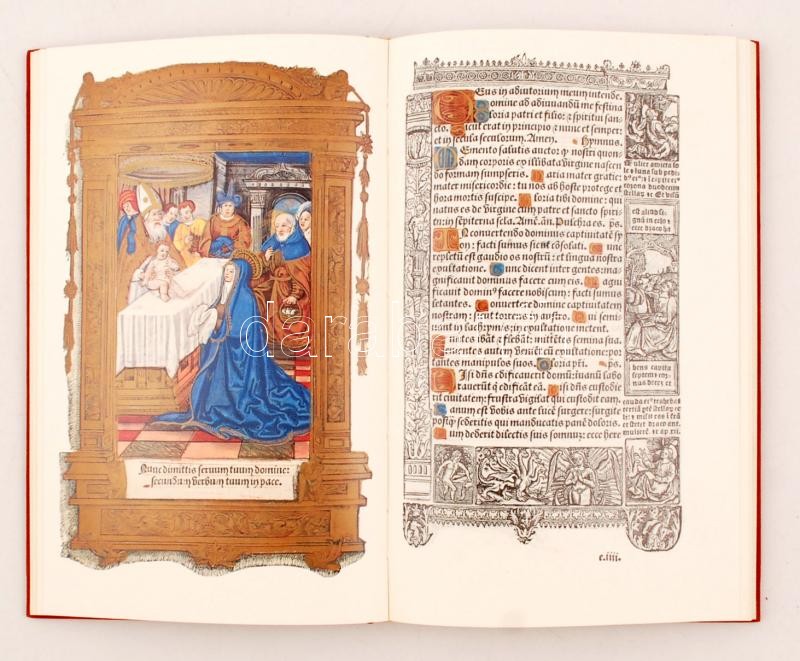 Nunc dimittis seruum tuum domine:
secundum verbum tuum in pace.
Deus in adiutorium meum intende.
Domine ad adiuuandū me festina
Gloria patri et filio: et spiritui san-
cto. Sicut erat in principio et nunc et semper
et in secula seculorum. Amen. Hymnus.
Memento salutis auctor qz nostri quon-
dam corporis ex illibata virgine nascen-
do formam sumpseris. Maria mater gratie:
mater misericordie: tu nos ab hoste protege et
hora mortis suscipe. Gloria tibi domine: qui
natus es de virgine cum patre et sancto spiritu
in sempiterna secla. Amē. añ. Pulchra es. ps.
In conuertendo dominus captiuitatē
syon: facti sumus sicut cōsolati. Tunc
repletū est gaudio os nostrū: et lingua nostra
exultatione. Tunc dicent inter gentes: ma-
gnificauit dominus facere cum eis. Magni
ficauit dominus facere nobiscum: facti sumus
letantes. Conuertere domine captiuitatem
nostram: sicut torrens in austro. Qui semi-
nant in lachrymis: in exultatione metent.
Euntes ibāt et flebāt: mittētes semina sua.
Venientes autem veniēt cū exultatione: por-
tantes manipulos suos. Gloria pr̄i. ps.
Nisi dn̄s edificauerit domum: in vanū labo-
rauerūt qui edificāt eā. Nisi dn̄s custodie-
rit ciuitatem: frustra vigilat qui custodit eam.
Vanum est vobis ante lucē surgere: surgite
postqz sederitis qui manducatis panē doloris.
Cum dederit dilectis suis somnum: ecce here
Mulier amicta so-
le et luna sub pedi
corona duodecim
est aliud si-
gnum in celo et
ecce draco ha
bens capita
septem et cor-
nua decez et
cauda eiꝰ trahebat
terciā ptē stellarū et
e.iiii.
darabanth